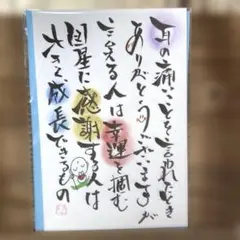 耳の痛いことを言われたとき
ありがとうございますが
言える人は幸運を掴む
図星に感謝する人は
大きく成長できるもの